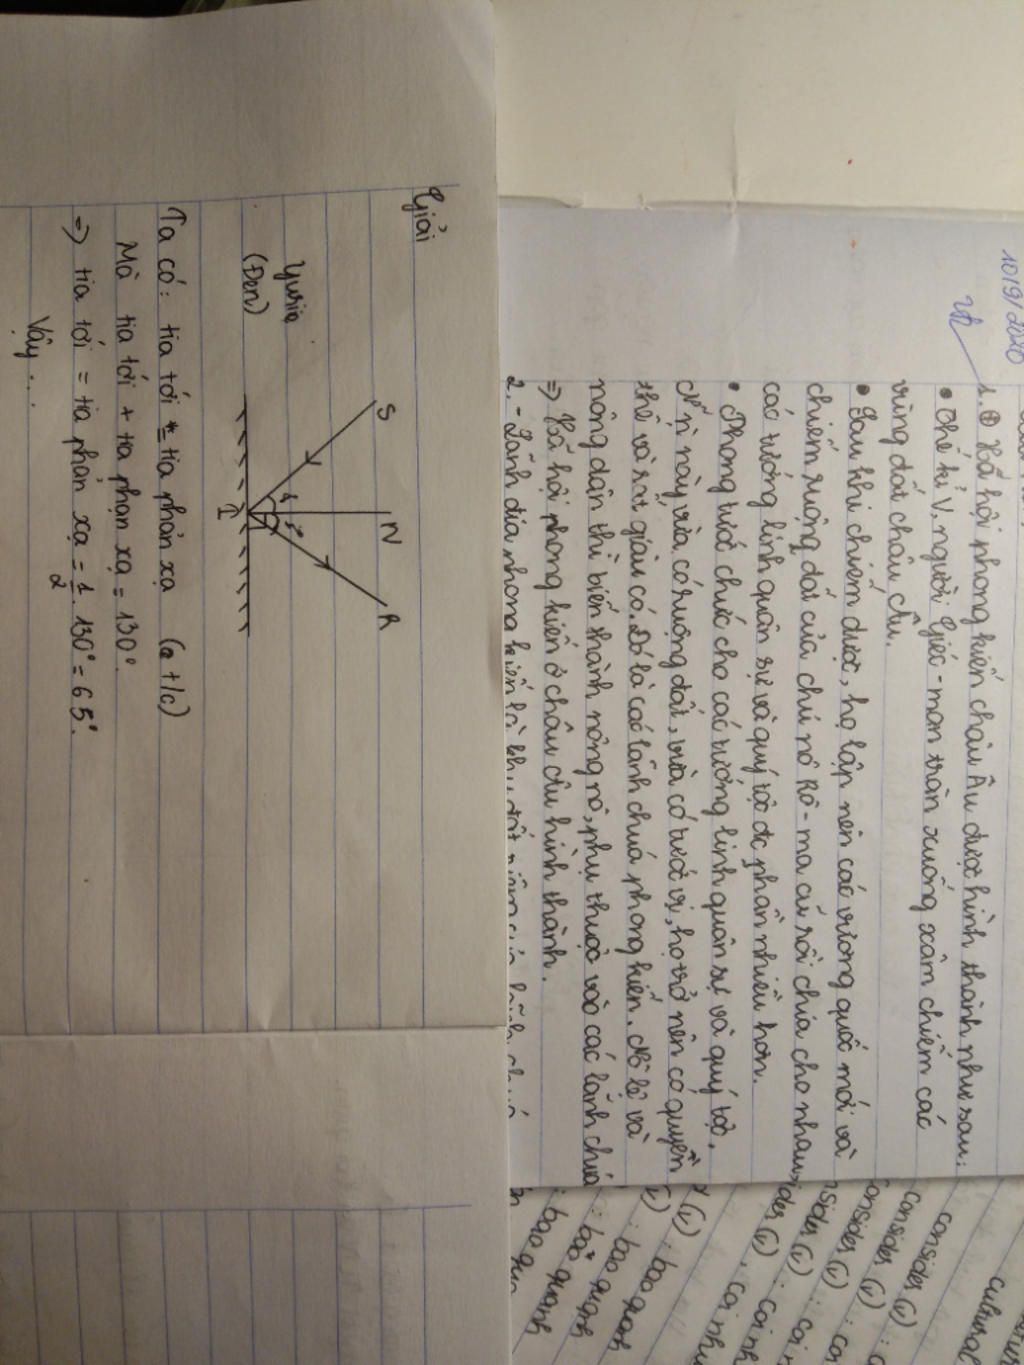 1019/2020
1. ⊕ Xã hội phong kiến châu Âu được hình thành như sau:
• Thế kỉ V, người Giéc-man tràn xuống xâm chiếm các
vùng đất châu Âu.
• Sau khi chiếm được, họ lập nên các vương quốc mới và
chiếm ruộng đất của chủ nô Rô-ma cũ rồi chia cho nhau
các tướng lĩnh quân sự và quý tộc đc phần nhiều hơn.
• Phong tước chức cho các tướng lĩnh quân sự và quý tộc.
này vừa có ruộng đất, vừa có tước vị, họ trở nên có quyền
thế và rất giàu có. Đó là các lãnh chúa phong kiến. Nô lệ và
nông dân thì biến thành nông nô, phụ thuộc vào các lãnh chúa
=) Xã hội phong kiến ở châu Âu hình thành.
2. - Lãnh địa phong kiến là
Giải
S
N
R
I
Yurio
(Đen)
Ta có: tia tới = tia phản xạ (a t/c)
Mà tia tới + tia phản xạ = 130°.
=) tia tới = tia phản xạ = 1/2 . 130° = 65°.
Vậy ...
cultural
consider (v)
consider (v) :
consider (v) : co
consider (v) : coi
(v) : coi nh
(v) : bao quanh
: bao quanh
: bao quanh
: bao quanh